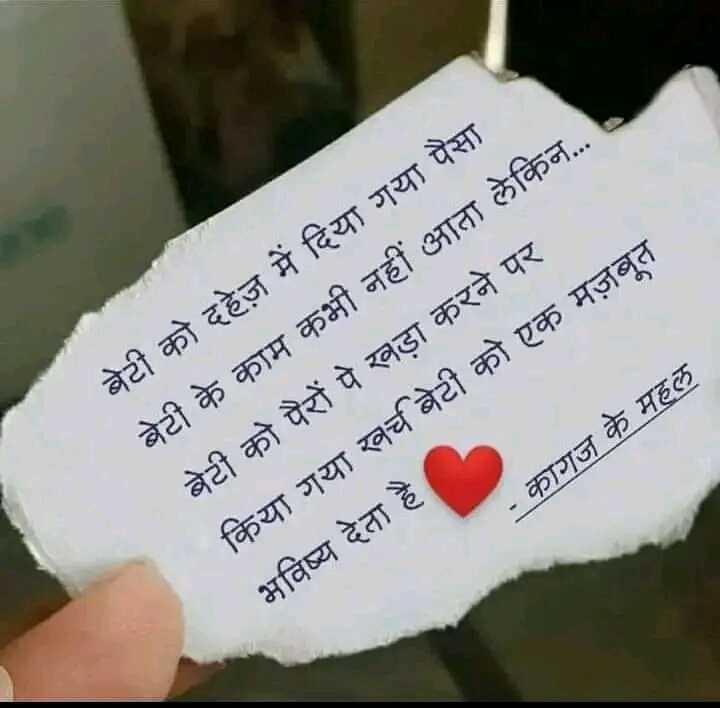 बेटी को दहेज़ में दिया गया पैसा
बेटी के काम कभी नहीं आता लेकिन...
बेटी को पैरों पे खड़ा करने पर
किया गया खर्च बेटी को एक मज़बूत
भविष्य देता है ❤️
- कागज के महल